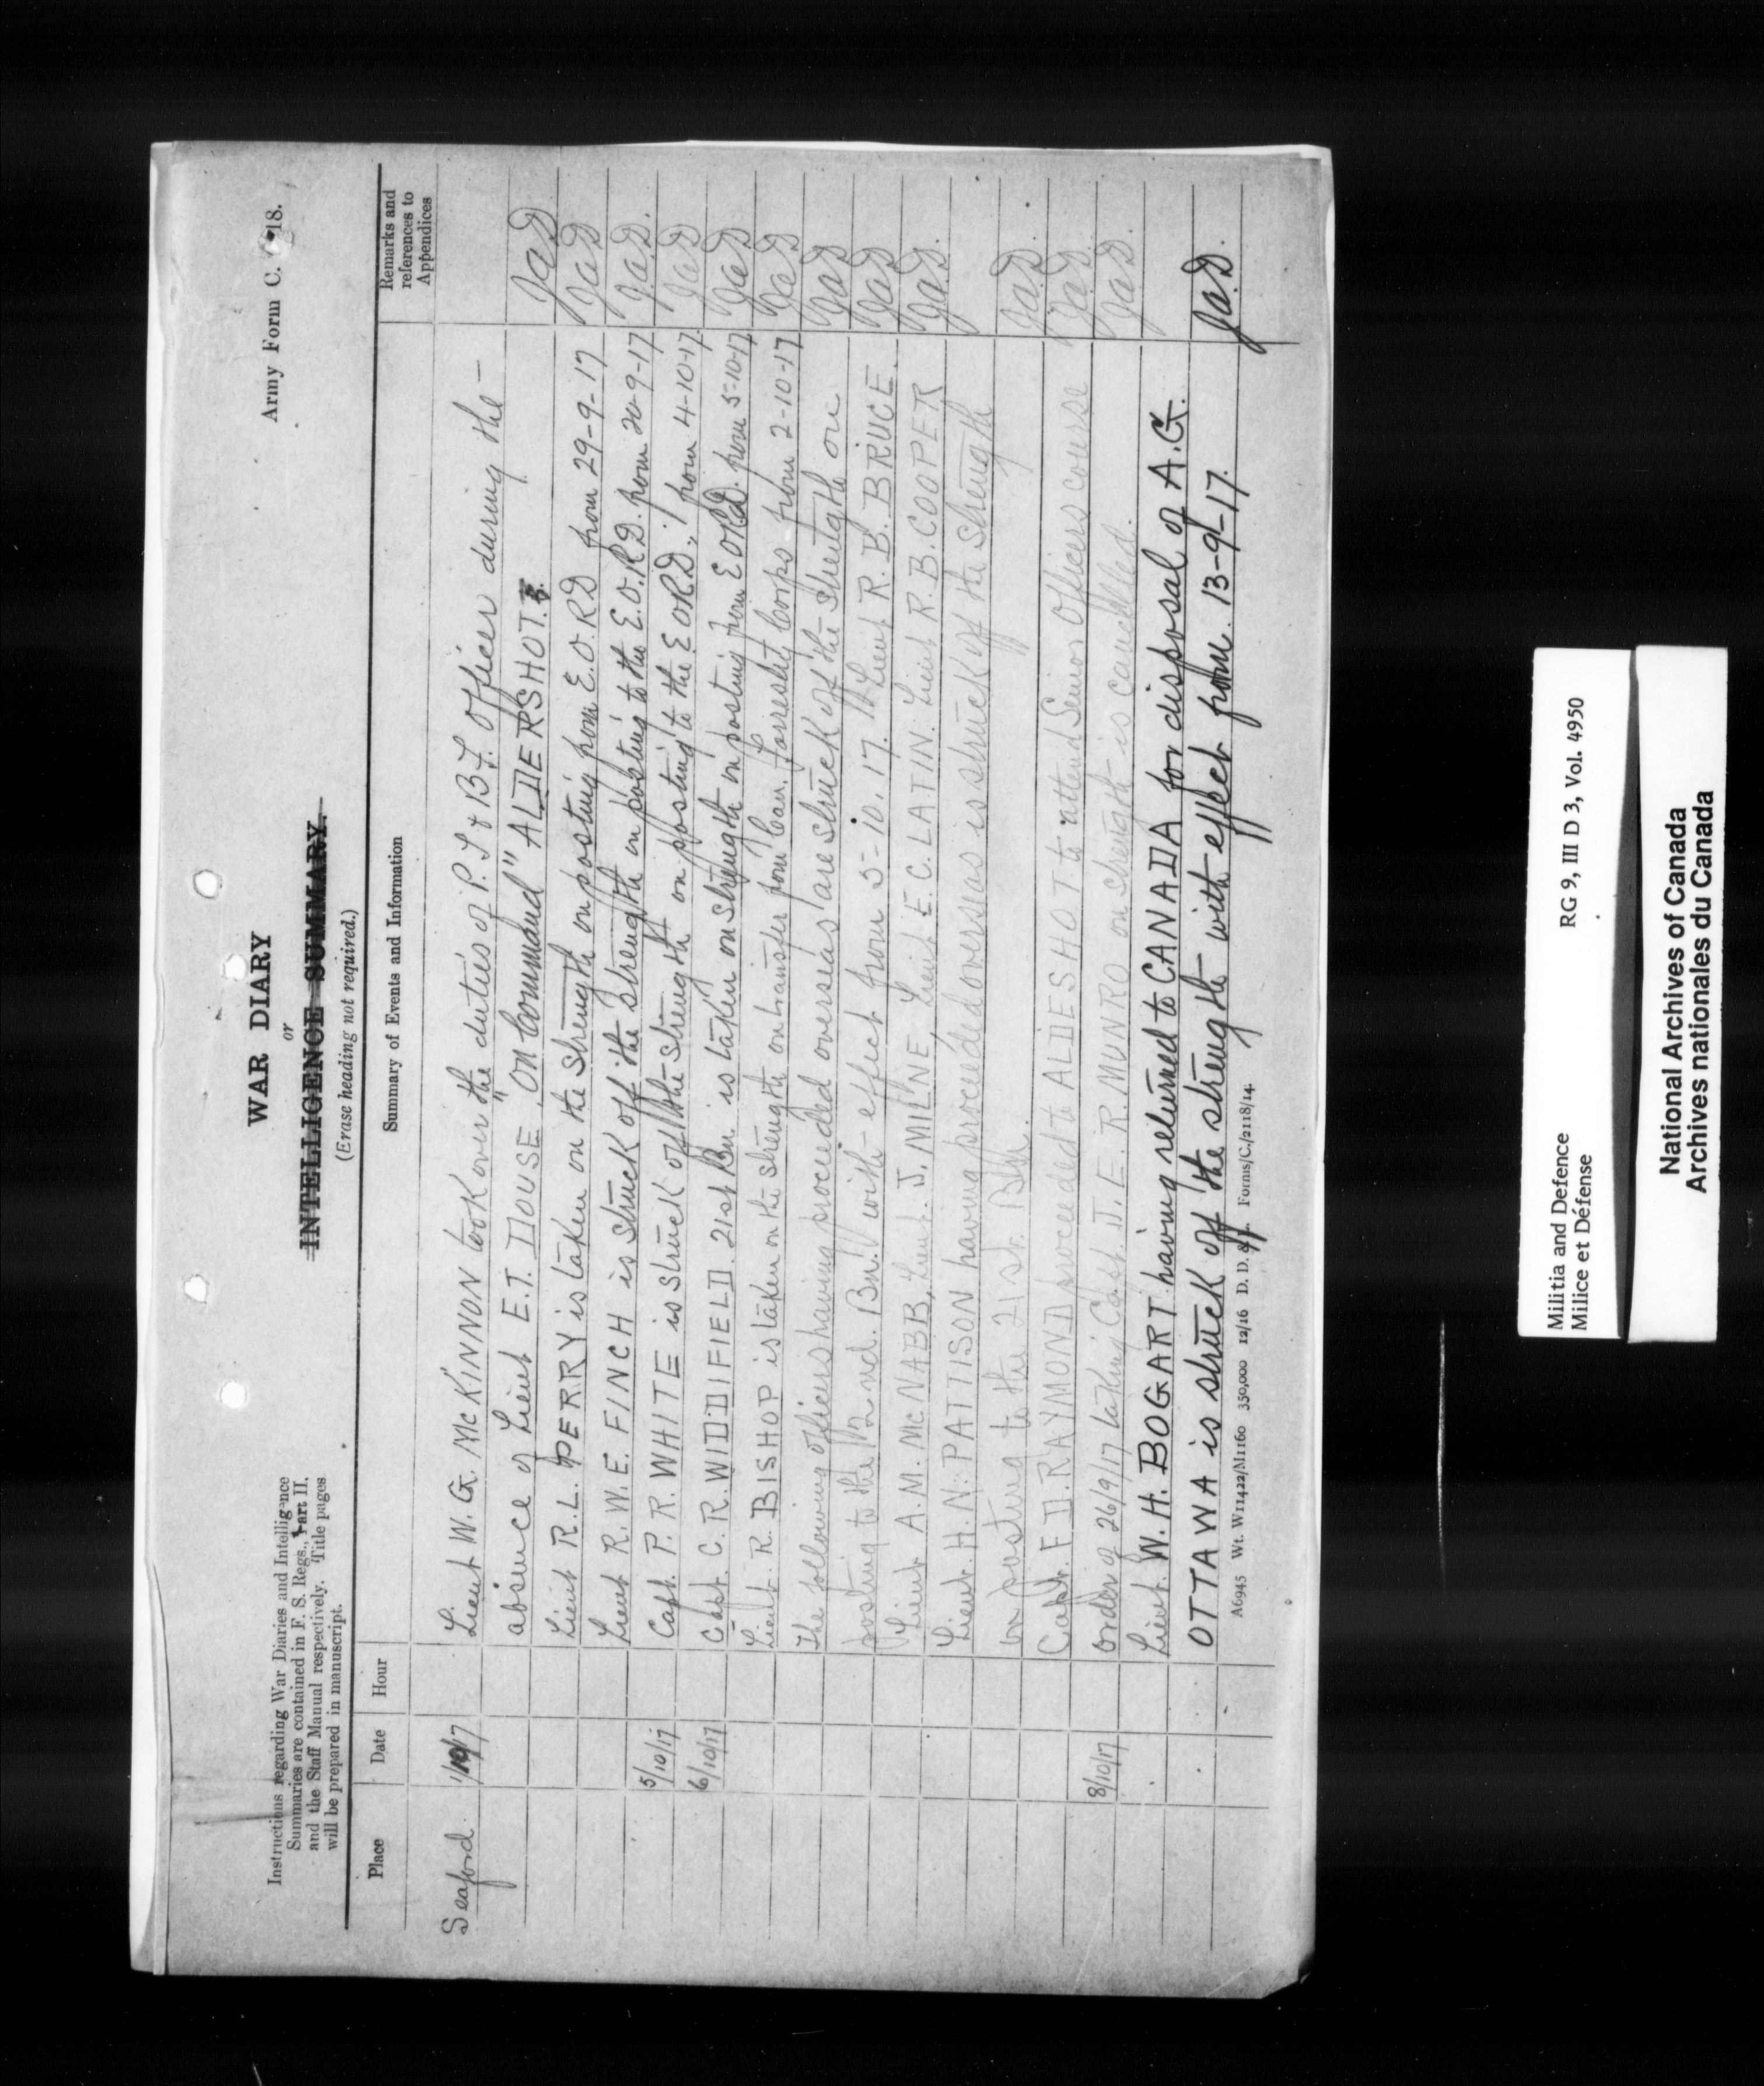 Army Form C. 18.
WAR DIARY
or
INTELLIGENCE SUMMARY.
(Erase heading not required.)
Instructions regarding War Diaries and Intelligence
Summaries are contained in F. S. Regs., Part II.
and the Staff Manual respectively. Title pages
will be prepared in manuscript.
Place Date Hour Summary of Events and Information Remarks and references to Appendices
Seaford 1/10/17 Lieut W. G. McKINNON took over the duties of P.T & B.F. Officer during the -
absence of Lieut E.T. DOUSE "On Command" ALDERSHOT. JaD
Lieut R.L. PERRY is taken on the strength on posting from E.O.RD from 29-9-17 JaD
Lieut R.W.E. FINCH is struck off the strength on posting to the E.O.RD. from 20-9-17 JaD.
5/10/17 Capt. P.R. WHITE is struck off the strength on posting to the EORD., from 4-10-17. JaD
6/10/17 Capt. C.R. WIDDIFIELD. 21st Bn is taken on strength on posting from EORD. from 5-10-17 JaD
Lieut. R. BISHOP is taken on the strength on transfer from Can. Forrestry Corps from 2-10-17 JaD
The following officers having proceeded overseas are struck off the strength on JaD
posting to the 2nd. Bn. with effect from 5-10.17. Lieut R.B. BRUCE. JaD
Lieut A.M. McNABB, Lieut. J. MILNE, Lieut E.C. LATIN. Lieut R.B. COOPER JaD.
Lieut. H.N. PATTISON having proceeded overseas is struck off the strength
on posting to the 21st. Bn. JaD.
Capt. F.D. RAYMOND proceeded to ALDESHOT to attend Senior Officers course JaD.
8/10/17 Order of 26/9/17 taking Capt. J.E.R. MUNRO on strength is cancelled. JaD.
Lieut. W.H. BOGART having returned to CANADA for disposal of A.G.
OTTAWA is struck off the strength with effect from. 13-9-17. JaD.
A6945 Wt. W11422/M1160 350,000 12/16 D. D. & L. Forms/C./2118/14.
Militia and Defence RG 9, III D 3, Vol. 4950
Milice et Défense
National Archives of Canada
Archives nationales du Canada